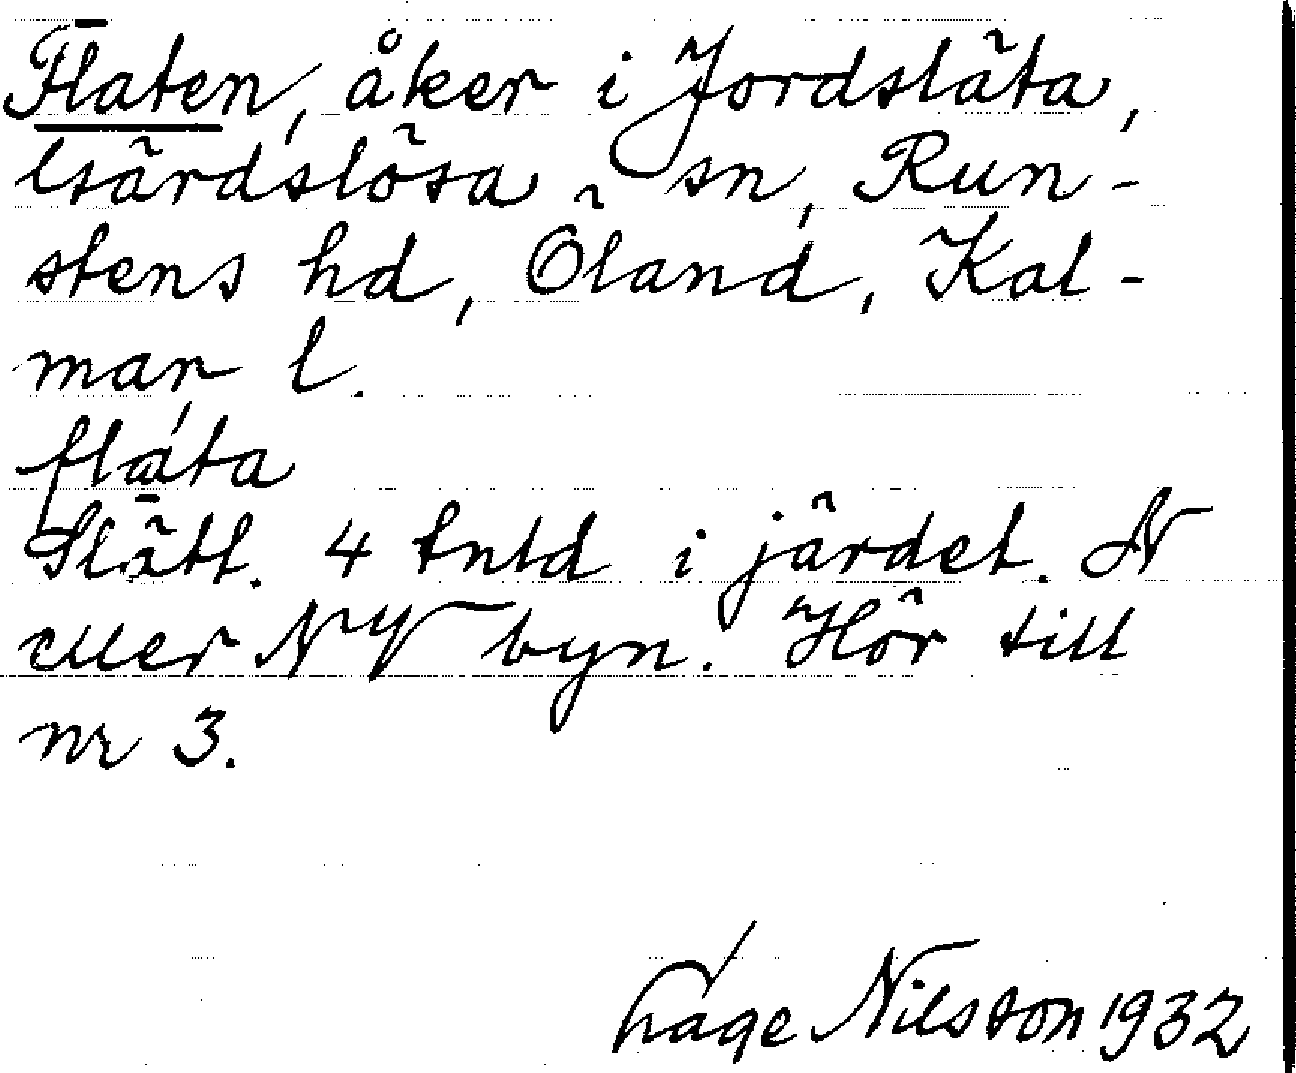 Flaten, åker i Jordsläta,
Gärdslösa sn, Run-
stens hd, Öland, Kal-
mar l.
fláta
Slätt. 4 tnld i järdet. N
eller NV byn. Hör till
nr 3.
Åage Nilsson 1932